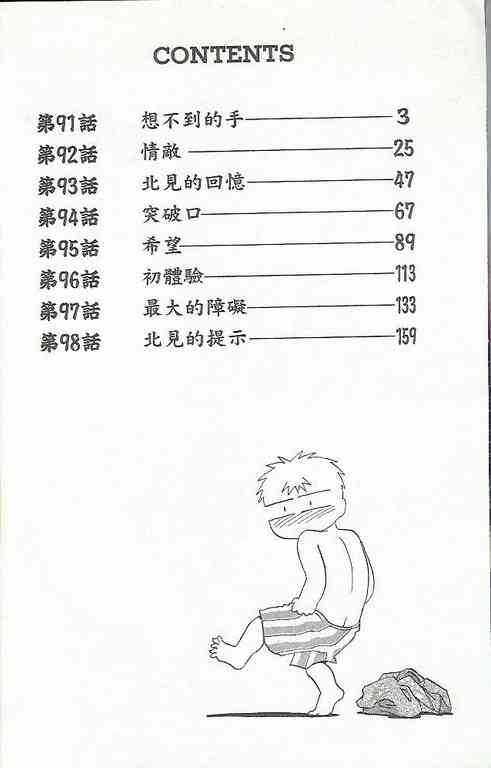 CONTENTS
第91話 想不到的手 3
第92話 情敵 25
第93話 北見的回憶 47
第94話 突破口 67
第95話 希望 89
第96話 初體驗 113
第97話 最大的障礙 133
第98話 北見的提示 159